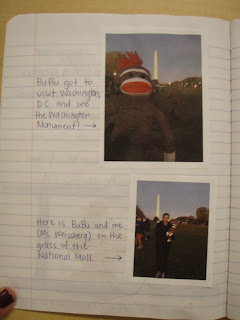 BuBu got to
visit Washington,
D.C. and see
the Washington
Monument! →
Here is BuBu and me
(Ms. Weisberg) on the
grass of the
National Mall. →